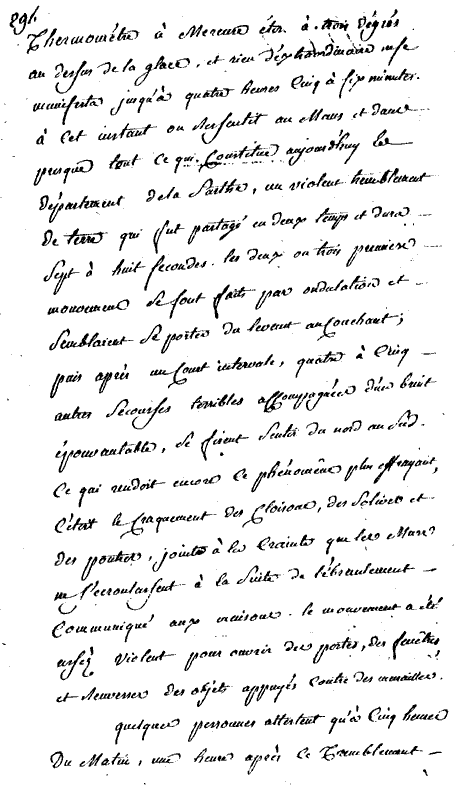 291.
Thermomètre à Mercure étoit à trois dégrés
au dessus de la glace, et rien d'extraordinaire ne se
manifesta jusqu'à quatre heures Cinq à Six minutes.
à Cet instant on ressentit au Mans et dans
presque tout ce qui Constitue aujourdhuy le
département de la Sarthe, un violent tremblement
de terre qui fut partagé en deux temps et dura
Sept à huit secondes. les deux ou trois premiers
mouvemens se sont faits par ondulation et
Semblaient se porter du levant au Couchant;
puis après un Court intervale, quatre à Cinq
autres Secousses terribles accompagnées d'un bruit
épouvantable, se firent Sentir du nord au Sud.
Ce qui rendoit encore ce phénomène plus effrayant,
C'étoit le Craquement des Cloisons, des Solives et
des poutres, jointe à la Crainte que les Murs
ne s'écroulassent à la Suite de l'ébranlement
Communiqué aux maisons. le mouvement a été
assez violent pour ouvrir des portes, des fenêtres
et renverser des objets appuyés contre des murailles.
quelques personnes attestent qu'à Cinq heures
Du Matin, une heure après ce Tremblement